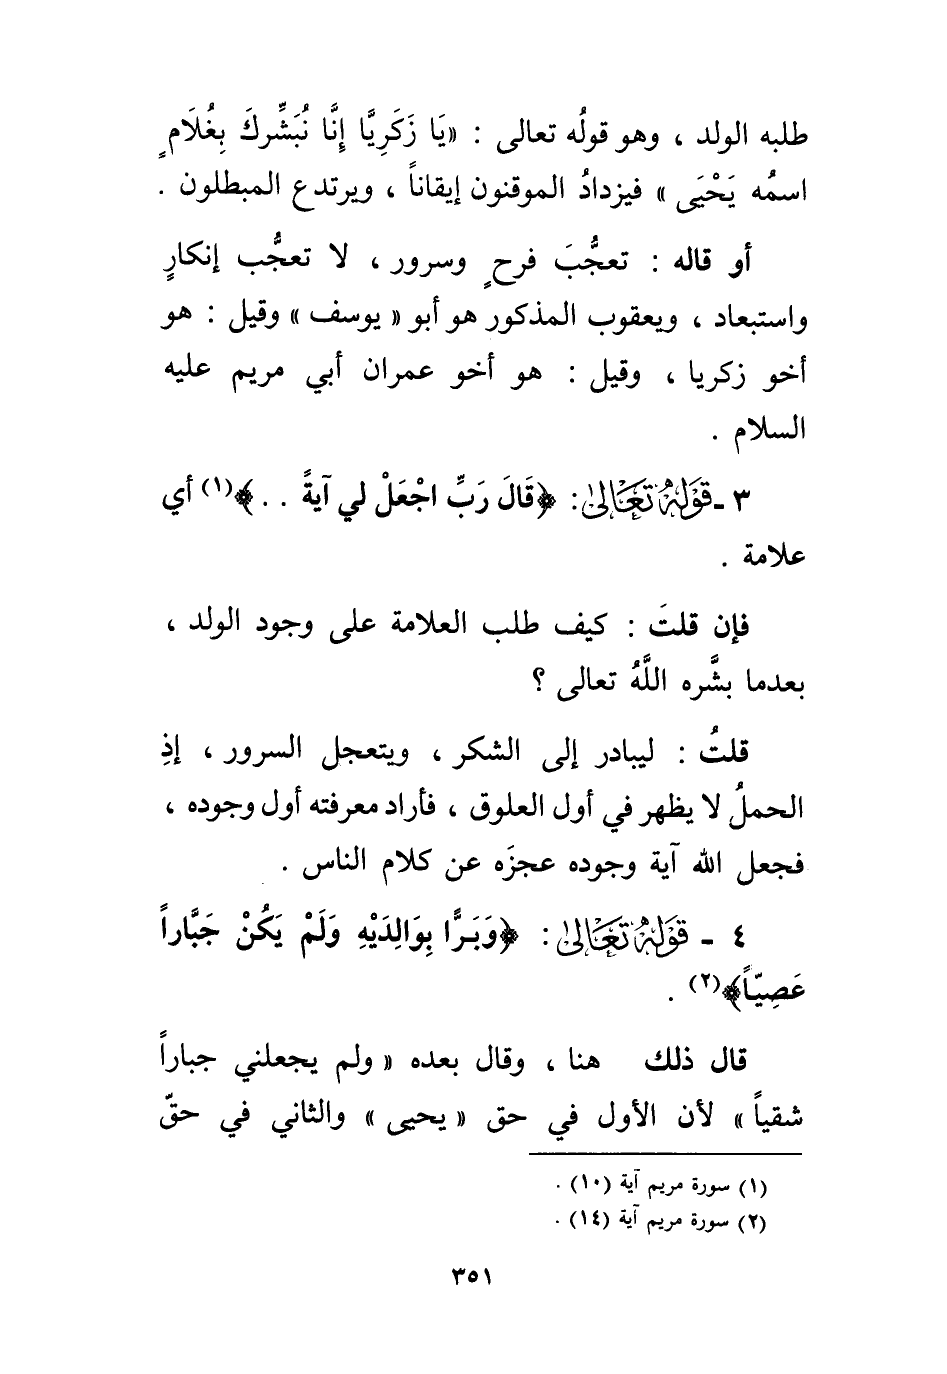 طلبه الولد ، وهو قولُه تعالى : «يَا زَكَرِيَّا إِنَّا نُبَشِّركَ بِغُلَامٍ
اسمُه يَحْيَى » فيزدادُ الموقنون إيقاناً ، ويرتدع المبطلون .
أو قاله : تعجُّبَ فرحٍ وسرور ، لا تعجُّب إنكارٍ
واستبعاد ، ويعقوب المذكور هو أبو « يوسف » وقيل : هو
أخو زكريا ، وقيل : هو أخو عمران أبي مريم عليه
السلام .
٣ ـ قَوْلُهُ تَعَالىٰ : ﴿قَالَ رَبِّ اجْعَلْ لي آيةً . . ﴾(١) أي
علامة .
فإن قلتَ : كيف طلب العلامة على وجود الولد ،
بعدما بشَّره اللَّهُ تعالى ؟
قلتُ : ليبادر إلى الشكر ، ويتعجل السرور ، إذِ
الحملُ لا يظهر في أول العلوق ، فأراد معرفته أول وجوده ،
فجعل الله آية وجوده عجزَه عن كلام الناس .
٤ ـ قَوْلُهُ تَعَالىٰ : ﴿وَبَرًّا بِوَالِدَيْهِ وَلَمْ يَكُنْ جَبَّاراً
عَصِيّاً﴾(٢) .
قال ذلك هنا ، وقال بعده « ولم يجعلني جباراً
شقياً » لأن الأول في حق « يحيى » والثاني في حقّ
(١) سورة مريم آية (١٠) .
(٢) سورة مريم آية (١٤) .
٣٥١